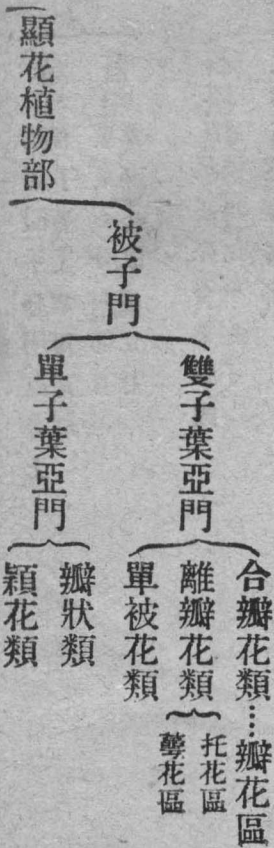 顯花植物部
被子門
雙子葉亞門
合瓣花類……瓣花區
離瓣花類
托花區
萼花區
單被花類
單子葉亞門
瓣狀類
穎花類